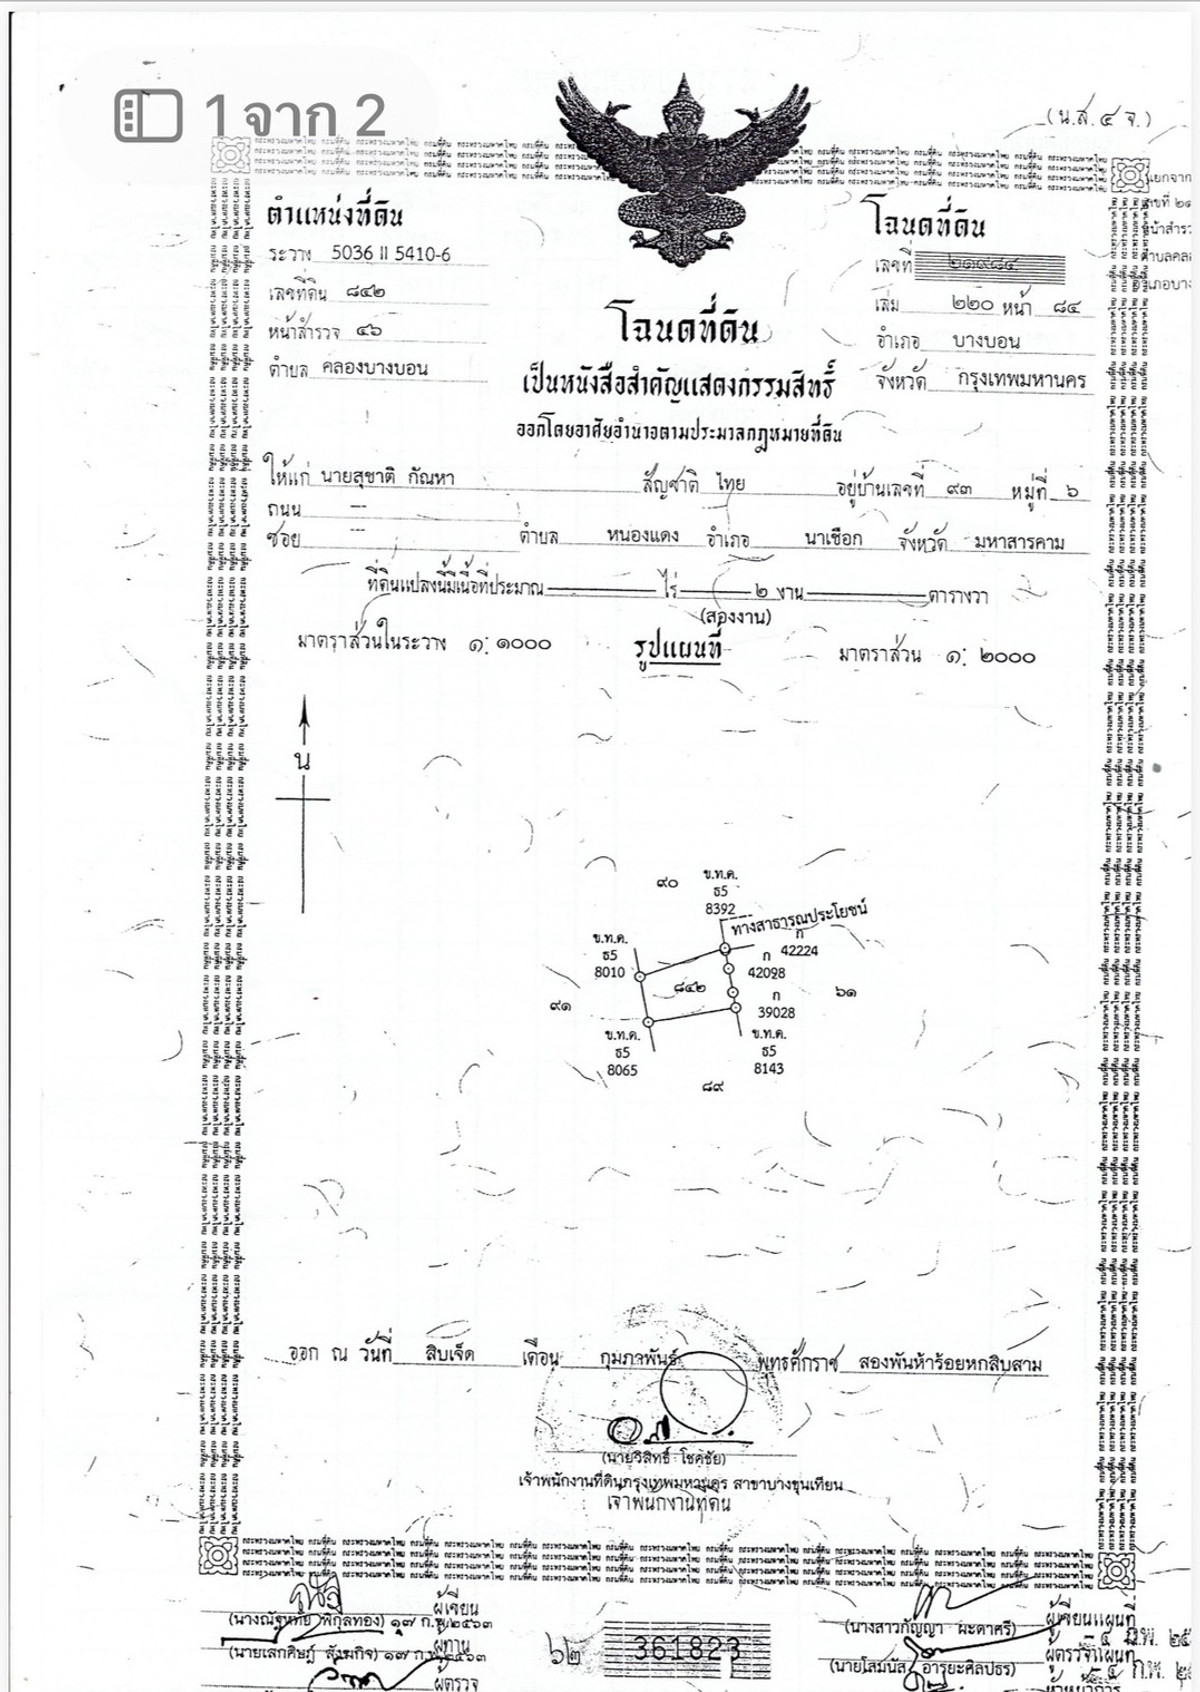 1 จาก 2
(น.ส. ๔ จ.)
ตำแหน่งที่ดิน
ระวาง 5036 II 5410-6
เลขที่ดิน ๘๔๒
หน้าสำรวจ ๔๖
ตำบล คลองบางบอน
โฉนดที่ดิน
เลขที่ ๒๑๙๘๔
เล่ม ๒๒๐ หน้า ๘๔
อำเภอ บางบอน
จังหวัด กรุงเทพมหานคร
โฉนดที่ดิน
เป็นหนังสือสำคัญแสดงกรรมสิทธิ์
ออกโดยอาศัยอำนาจตามประมวลกฎหมายที่ดิน
ให้แก่ นายสุชาติ กัณหา สัญชาติ ไทย อยู่บ้านเลขที่ ๙๓ หมู่ที่ ๖
ถนน ---
ซอย --- ตำบล หนองแดง อำเภอ นาเชือก จังหวัด มหาสารคาม
ที่ดินแปลงนี้มีเนื้อที่ประมาณ ไร่ ๒ งาน ตารางวา
(สองงาน)
มาตราส่วนในระวาง ๑: ๑๐๐๐ รูปแผนที่ มาตราส่วน ๑: ๒๐๐๐
น
๙๐
ข.ท.ค.
ธ5
8392
ทางสาธารณประโยชน์
ก
42224
ข.ท.ค.
ธ5
8010
ก
42098
๘๔๒
๙๑
๖๑
ก
39028
ข.ท.ค.
ธ5
8065
ข.ท.ค.
ธ5
8143
๘๙
ออก ณ วันที่ สิบเจ็ด เดือน กุมภาพันธ์ พุทธศักราช สองพันห้าร้อยหกสิบสาม
(นายวิสิทธิ์ โชคชัย)
เจ้าพนักงานที่ดินกรุงเทพมหานคร สาขาบางขุนเทียน
เจ้าพนักงานที่ดิน
ผู้เขียน
(นางณัฐหทัย พิกุลทอง) ๑๗ ก.พ. ๒๕๖๓
ผู้ทาน
๖๒ 361823
(นางสาวกัญญา ผะดาศรี) ผู้เขียนแผนที่
ผู้ตรวจแผนที่
ผู้ตรวจ